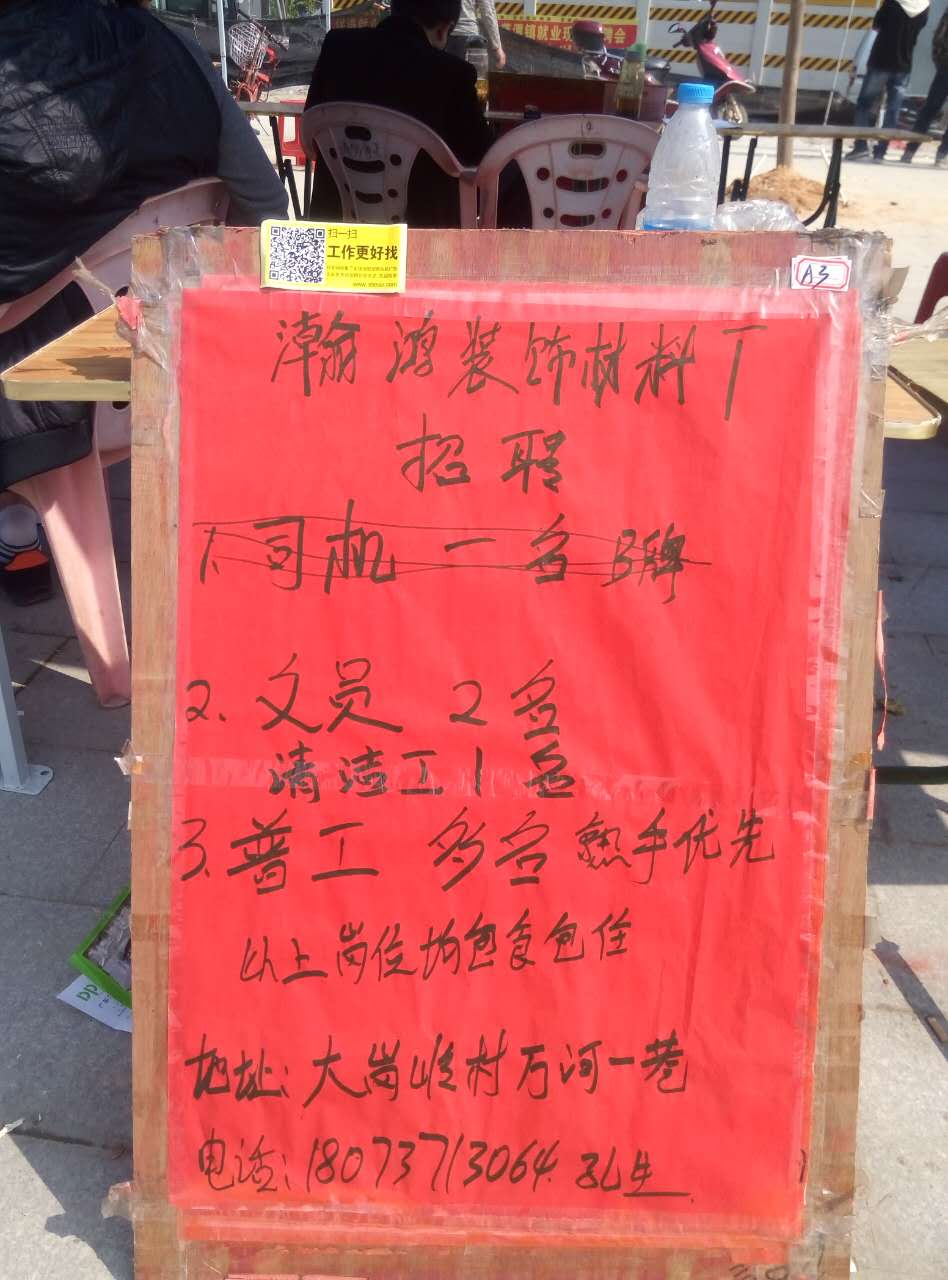 镇就业现
聘会
扫一扫
工作更好找
A3
瀚鸿装饰材料厂
招聘
1.司机一名B牌
2.文员2名
清洁工1名
3.普工多名熟手优先
以上岗位均包食包住
地址:大岗岭村万河一巷
电话:18073713064.孔生